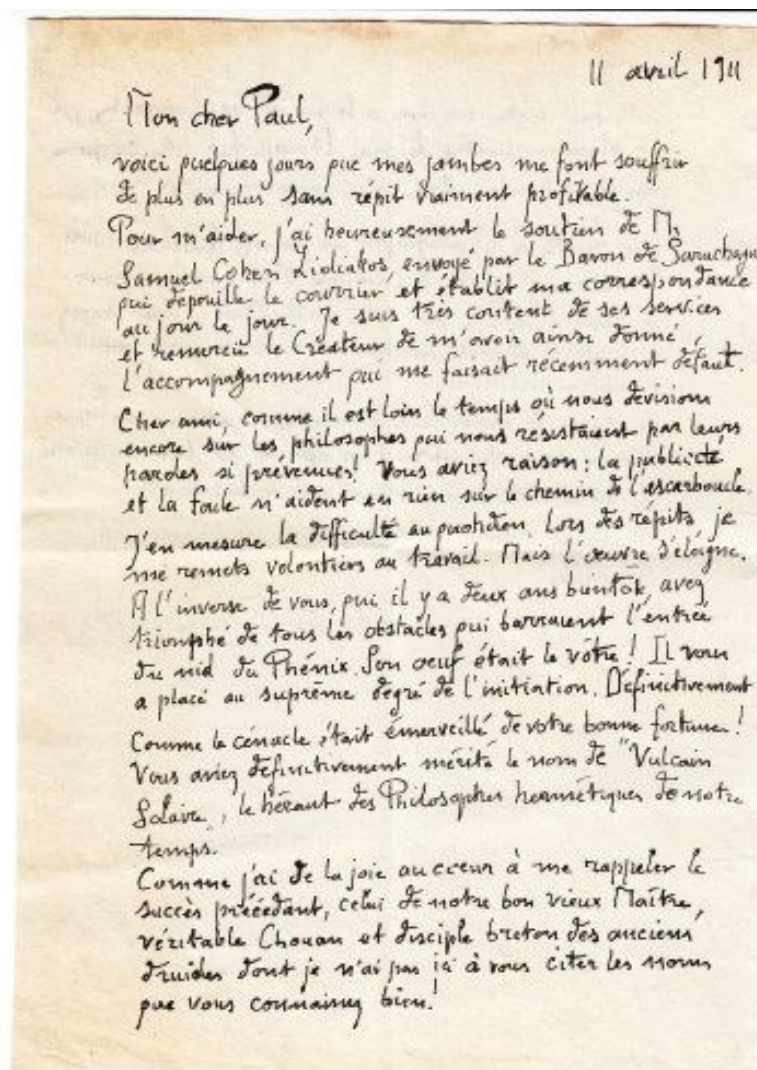 11 avril 1911
Mon cher Paul,
voici quelques jours que mes jambes me font souffrir
de plus en plus sans répit vraiment profitable.
Pour m'aider, j'ai heureusement le soutien de M.
Samuel Cohen Lidiakos, envoyé par le Baron de Saruchaga
qui dépouille le courrier et établit ma correspondance
au jour le jour. Je suis très content de ses services
et remercie le Créateur de m'avoir ainsi donné
l'accompagnement qui me faisait récemment défaut.
Cher ami, comme il est loin le temps où nous devisions
encore sur les philosophes qui nous résistaient par leurs
paroles si prévenues! Vous aviez raison : la publicité
et la foule n'aident en rien sur le chemin de l'escarboucle.
J'en mesure la difficulté au quotidien. Lors des répits, je
me remets volontiers au travail. Mais l'œuvre s'éloigne.
A l'inverse de vous, qui il y a deux ans bientôt, avez
triomphé de tous les obstacles qui barraient l'entrée
du nid du Phénix. Son oeuf était le vôtre! Il vous
a placé au suprême degré de l'initiation. Définitivement
Comme le cénacle était émerveillé de votre bonne fortune!
Vous aviez définitivement mérité le nom de "Vulcain
Solaire", le héraut des Philosophes hermétiques de notre
temps.
Comme j'ai de la joie au cœur à me rappeler le
succès précédant, celui de notre bon vieux Maître,
véritable Chouan et disciple breton des anciens
druides dont je n'ai pas ici à vous citer les noms
que vous connaissez bien!